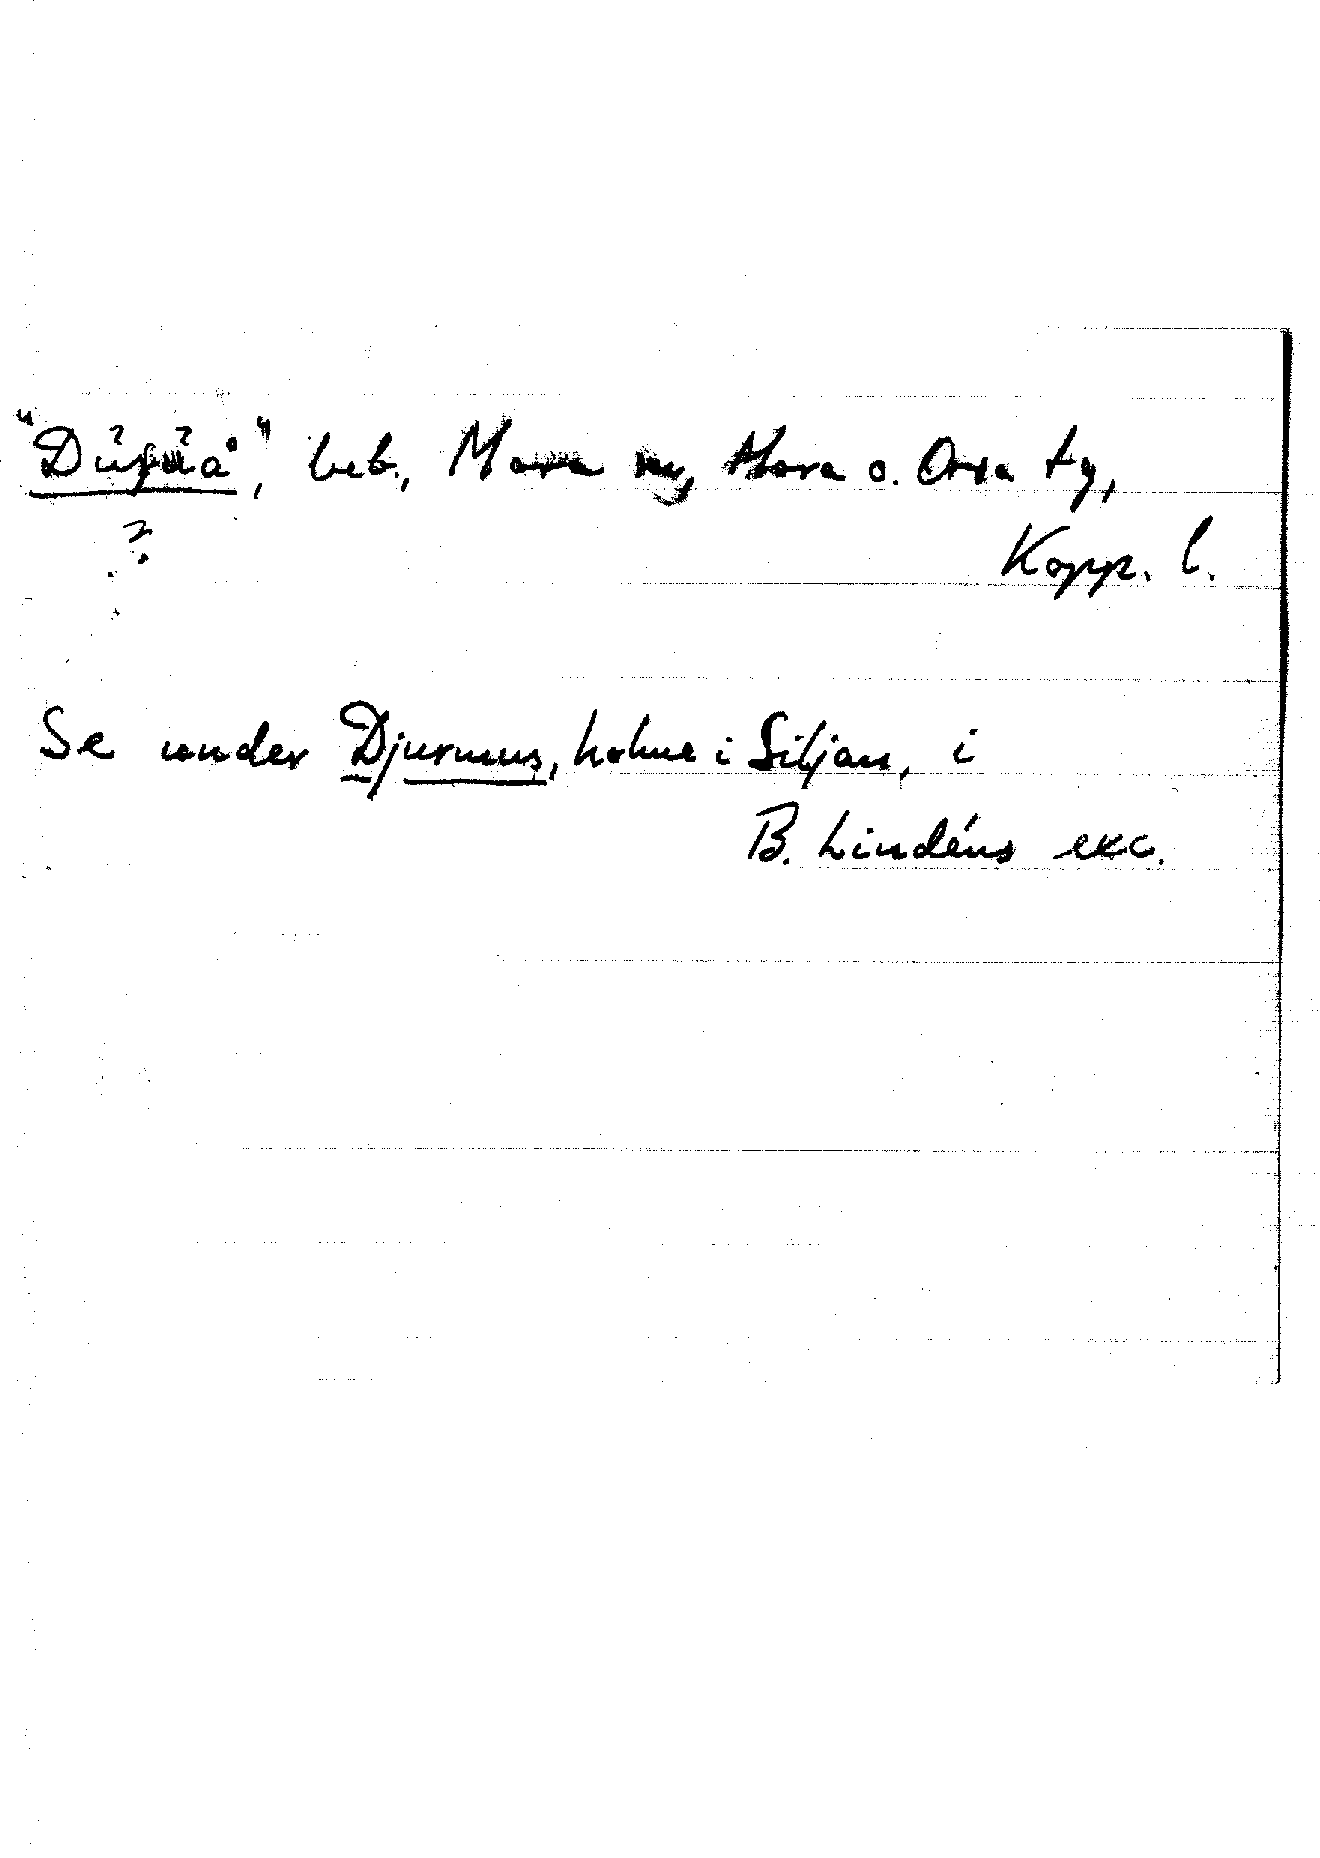 beb., Mora sn, Mora o. Orsa tg,
?
Kopp. l.
Se under Djurmus, holme i Siljan, i
B. Lindéns exc.